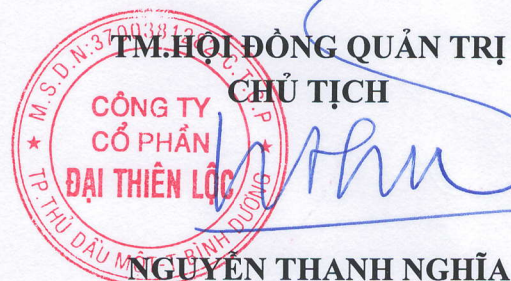 TM.HỘI ĐỒNG QUẢN TRỊ
CHỦ TỊCH
CÔNG TY
CỔ PHẦN
ĐẠI THIÊN LỘC
TP.THỦ DẦU MỘT-T.BÌNH DƯƠNG
NGUYỄN THANH NGHĨA